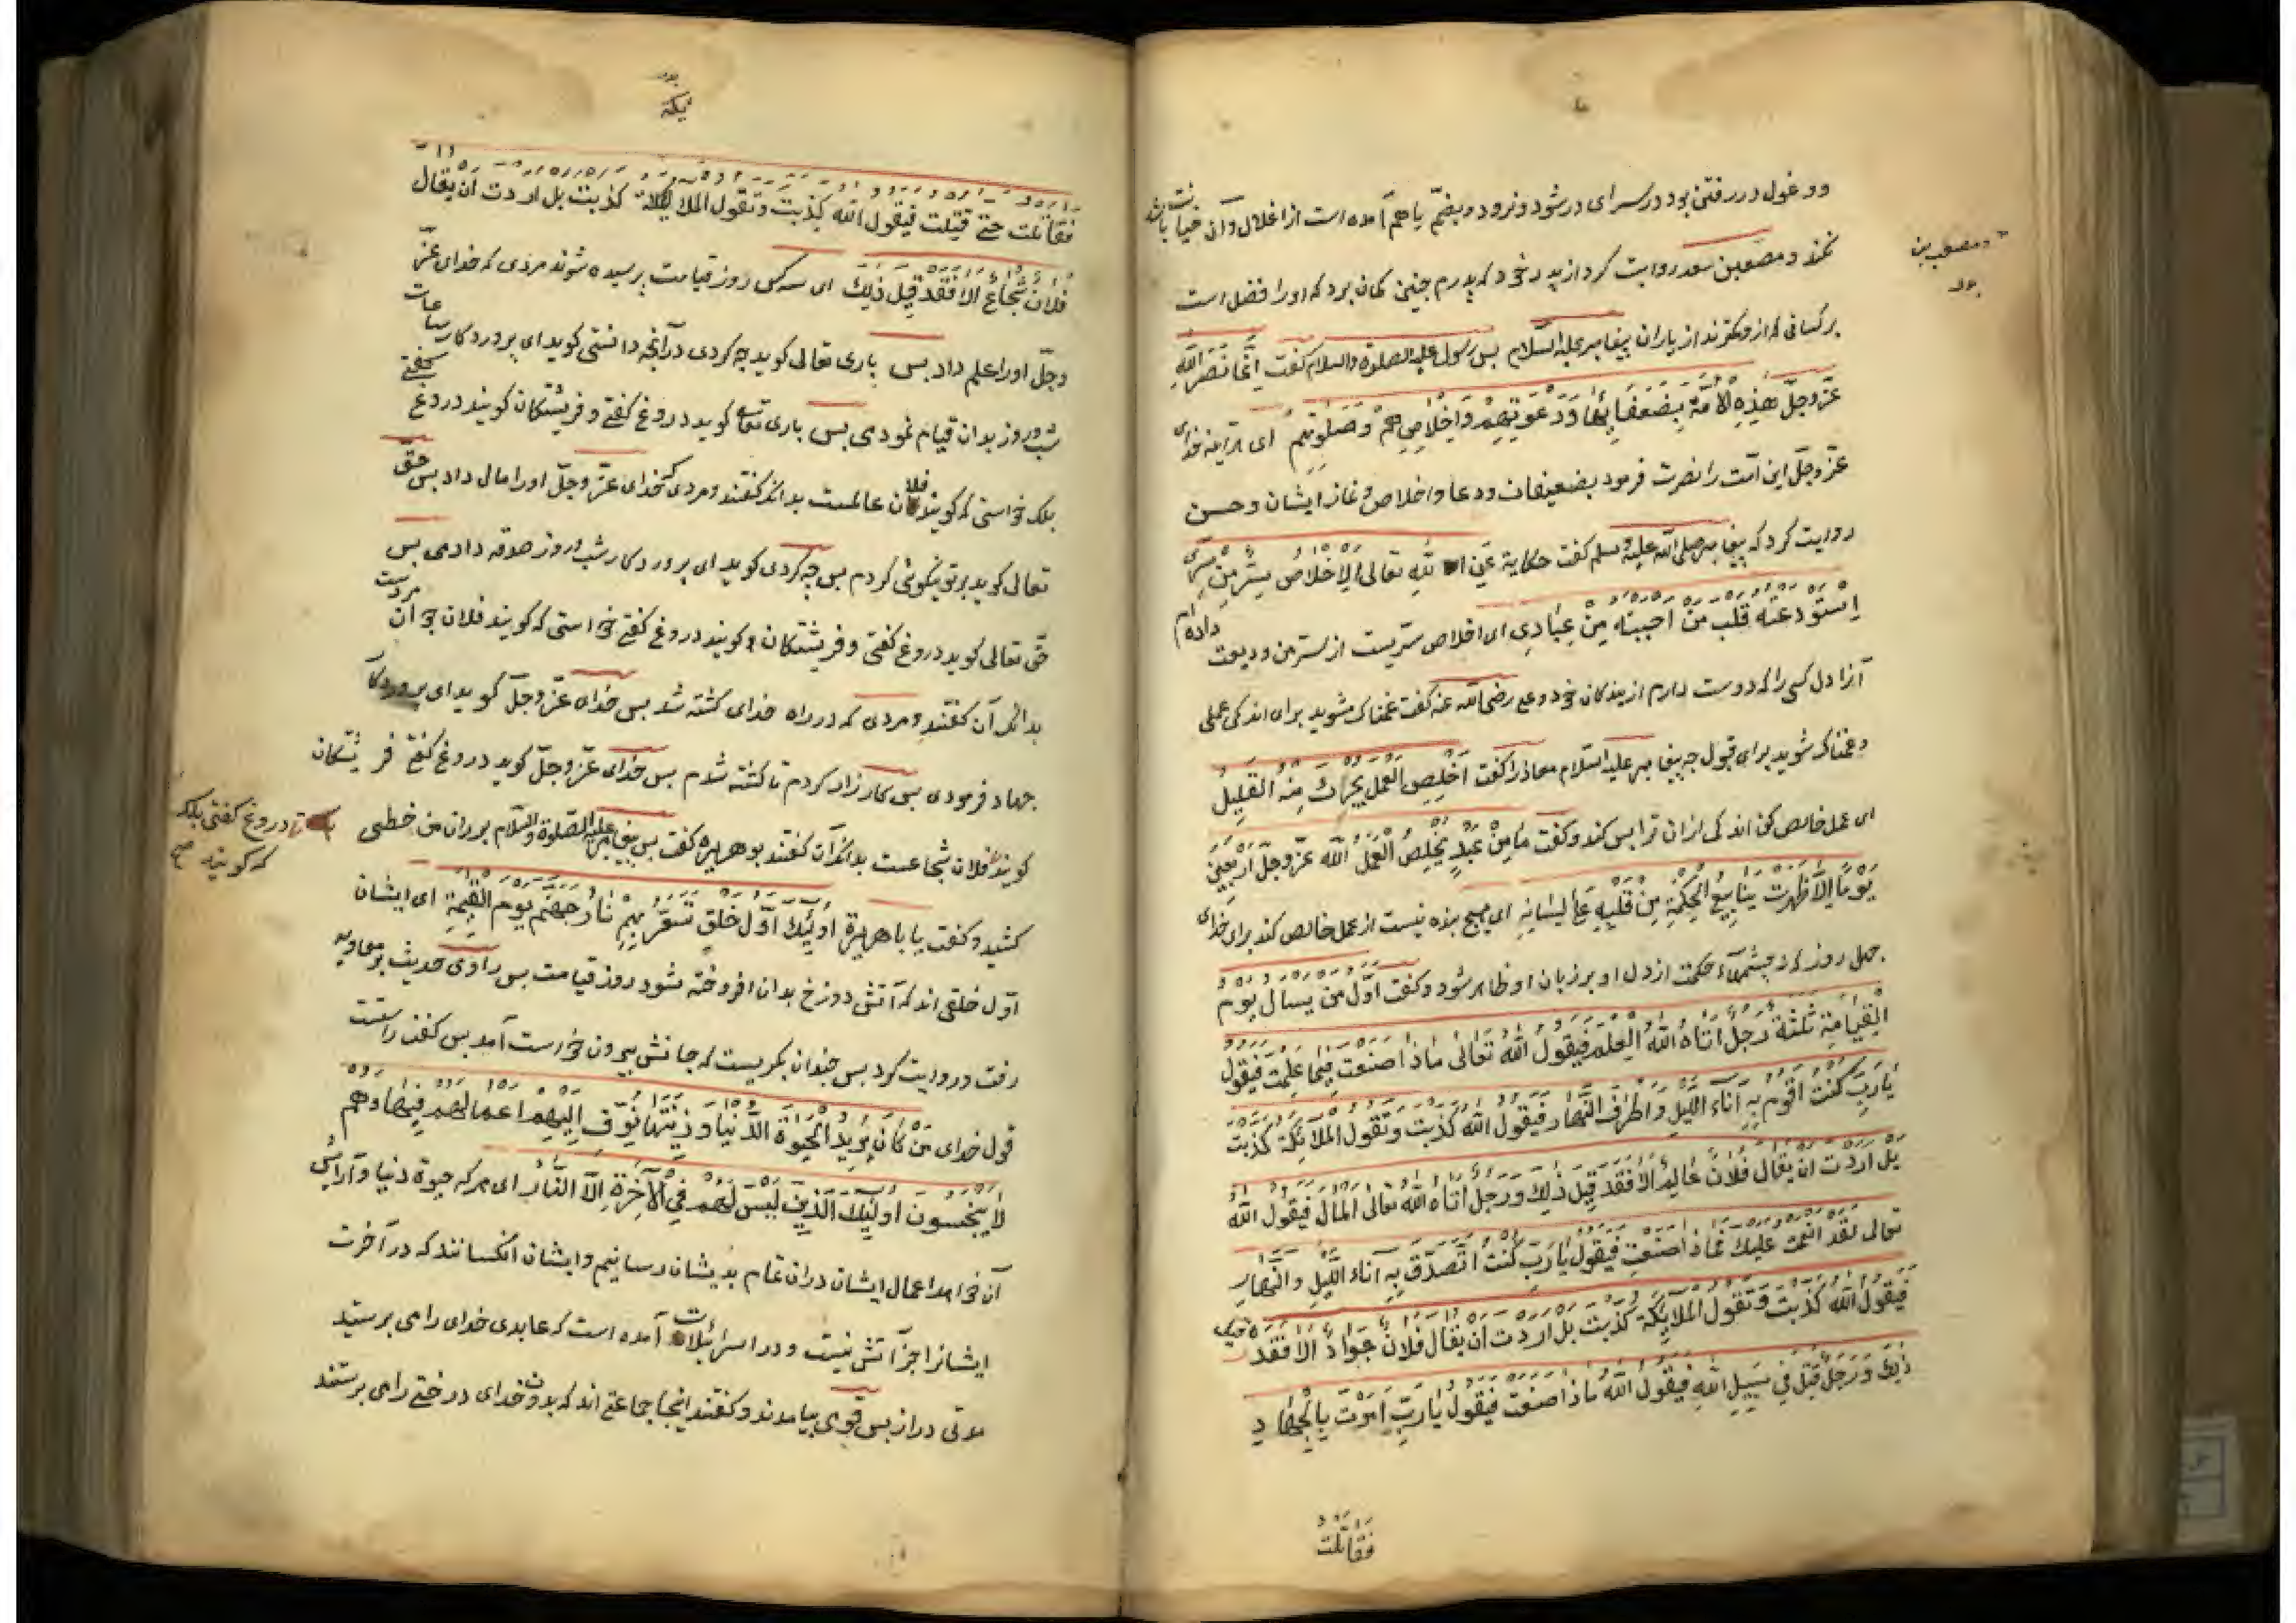 و و غول در رفتنی بود در سرای در شود و فرود و بضمّ یا هم آمده است از اغلال و آن خیانت باشد
نکند و مصعب بن سعد روایت کرد از پدر خود که پدرم چنین کمان برد که او را فضل است
و مصعب بن
بر کسانی که از و کمترند از یاران پیغامبر علیه السلام بس رسول علیه الصلوة والسلام کفت اِنَّما نَصَرَ اللّٰه
عَزَّوجلَّ هٰذِهِ الاُمَّةَ بِضُعَفَائِهَا وَدَعْوَتِهِمْ وَاِخْلَاصِهِمْ وَصَلٰوتِهِمْ ای هر آینه خدای
عزّ وجلّ این امّت را نصرت فرمود بضعیفان و دعا و اخلاص و نماز ایشان و حسن
روایت کرد که پیغامبر صلی الله علیه وسلم کفت حکایة عَنِ اللّٰهِ تعالی اَلاِخْلاصُ سِرٌّ مِنْ سِرِّی
اِسْتَوْدَعْتُهُ قَلْبَ مَنْ اَحْبَبْتُهُ مِنْ عِبَادِی ای اخلاص سرّیست از سرّ من ودیعت داده‌ام
آنرا دل کسی را که دوست دارم از بندکان خود و علی رضی الله عنه کفت غمناک مشوید برای اندکی عملی
و غمناک شوید برای قبول چه پیغامبر علیه السلام معاذ را کفت اَخْلِصِ الْعَمَلَ یُجْزِكَ مِنْهُ الْقَلِیلُ
ای عمل خالص کن اندکی از ان ترا بس کند و کفت مَا مِنْ عَبْدٍ یُخْلِصُ الْعَمَلَ لِلّٰهِ عَزَّ وَجَلَّ اَرْبَعِینَ
یَوْمًا اِلَّا ظَهَرَت یَنَابِیعُ الْحِکْمَةِ مِنْ قَلْبِهِ عَلٰی لِسَانِهِ ای هیچ بنده نیست از عمل خالص کند برای خدای
چهل روز که نه چشمهاء حکمت از دل او بر زبان او ظاهر شود و کفت اَوَّلُ مَنْ یُسْأَلُ یَوْمَ
الْقِیَامَةِ ثَلٰثَةٌ رَجُلٌ اٰتَاهُ اللّٰهُ الْعِلْمَ فَیَقُولُ اللّٰهُ تَعَالٰی مَاذَا صَنَعْتَ فِیمَا عَلِمْتَ فَیَقُولُ
یَارَبِّ کُنْتُ اَقُومُ بِهِ اٰنَاءَ اللَّیْلِ وَ اَطْرَافَ النَّهَارِ فَیَقُولُ اللّٰهُ کَذَبْتَ وَتَقُولُ الْمَلَائِکَةُ کَذَبْتَ
بَلْ اَرَدْتَ اَنْ یُقَالَ فُلَانٌ عَالِمٌ اَلَا فَقَدْ قِیلَ ذٰلِكَ وَرَجُلٌ اٰتَاهُ اللّٰهُ تَعَالٰی الْمَالَ فَیَقُولُ اللّٰهُ
تَعَالٰی لَقَدْ اَنْعَمْتُ عَلَیْكَ فَمَاذَا صَنَعْتَ فَیَقُولُ یَارَبِّ کُنْتُ اَتَصَدَّقُ بِهِ اٰنَاءَ اللَّیْلِ وَالنَّهَارِ
فَیَقُولُ اللّٰهُ کَذَبْتَ وَتَقُولُ الْمَلَائِکَةُ کَذَبْتَ بَلْ اَرَدْتَ اَنْ یُقَالَ فُلَانٌ جَوَادٌ اَلَا فَقَدْ قِیلَ
ذٰلِكَ وَرَجُلٌ قُتِلَ فِی سَبِیلِ اللّٰهِ فَیَقُولُ اللّٰهُ مَاذَا صَنَعْتَ فَیَقُولُ یَارَبِّ اُمِرْتُ بِالْجِهَادِ
فَقَاتَلْتُ
ئیکة
فَقَاتَلْتُ حَتّٰی قُتِلْتُ فَیَقُولُ اللّٰهُ کَذَبْتَ وَتَقُولُ الْمَلَائِکَةُ کَذَبْتَ بَلْ اَرَدْتَ اَنْ یُقَالَ
فُلَانٌ شُجَاعٌ اَلَا فَقَدْ قِیلَ ذٰلِكَ ای سه کس روز قیامت پرسیده شوند مردی که خدای عزّ
وجلّ او را علم داد بس باری تعالی کوید چه کردی در آنچه دانستی کوید ای پروردکار ساعات
شب و روز بدان قیام نمودمی بس باری تعالی کوید دروغ کفتی و فریشتکان کویند دروغ کفتی
بلک خواستی که کویند فلان عالمست بدانک کفتند و مردی که خدای عزّ وجلّ او را مال داد بس حق
تعالی کوید بر تو نیکوئی کردم بس چه کردی کوید ای پروردکار شب و روز صدقه دادمی بس
حق تعالی کوید دروغ کفتی و فریشتکان کویند دروغ کفتی خواستی که کویند فلان جوان مردست
بدانک آن کفتند و مردی که در راه خدای کشته شد بس خدای عزّ وجلّ کوید ای پروردکار
جهاد فرمودی بس کارزار کردم تا کشته شدم بس خدای عزّ وجلّ کوید دروغ کفتی فریشتکان
دروغ کفتی بلکه
که کویند صح
کویند فلان شجاعست بدانک آن کفتند بوهریره کفت بس پیغامبر علیه الصلوة والسلام بر ران من خطی
کشید و کفت یا با هریرة اُولٰئِكَ اَوَّلُ خَلْقٍ تُسَعَّرُ بِهِمْ نَارُ جَهَنَّمَ یَوْمَ الْقِیٰمَةِ ای ایشان
اوّل خلقی اند که آتش دوزخ بدان افروخته شود روز قیامت بس راوی حدیث بر معاویه
رفت و روایت کرد بس چندان بکریست که جانش بیرون خواست آمد بس کفت راستست
قول خدای مَنْ کَانَ یُرِیدُ الْحَیٰوةَ الدُّنْیَا وَزِینَتَهَا نُوَفِّ اِلَیْهِمْ اَعْمَالَهُمْ فِیهَا وَهُمْ
لَا یُبْخَسُونَ اُولٰئِكَ الَّذِینَ لَیْسَ لَهُمْ فِی الْاٰخِرَةِ اِلَّا النَّارُ ای هر که حیوة دنیا و آرایش
آن خواهد اعمال ایشان دران تمام بدیشان رسانیم و ایشان انکسانند که در آخرت
ایشانرا جز آتش نیست و در اسرائیلات آمده است که عابدی خدای را می پرستید
مدتی دراز بس قومی بیامدند و کفتند اینجا جماعتی اند که بدون خدای درختی را می پرستند